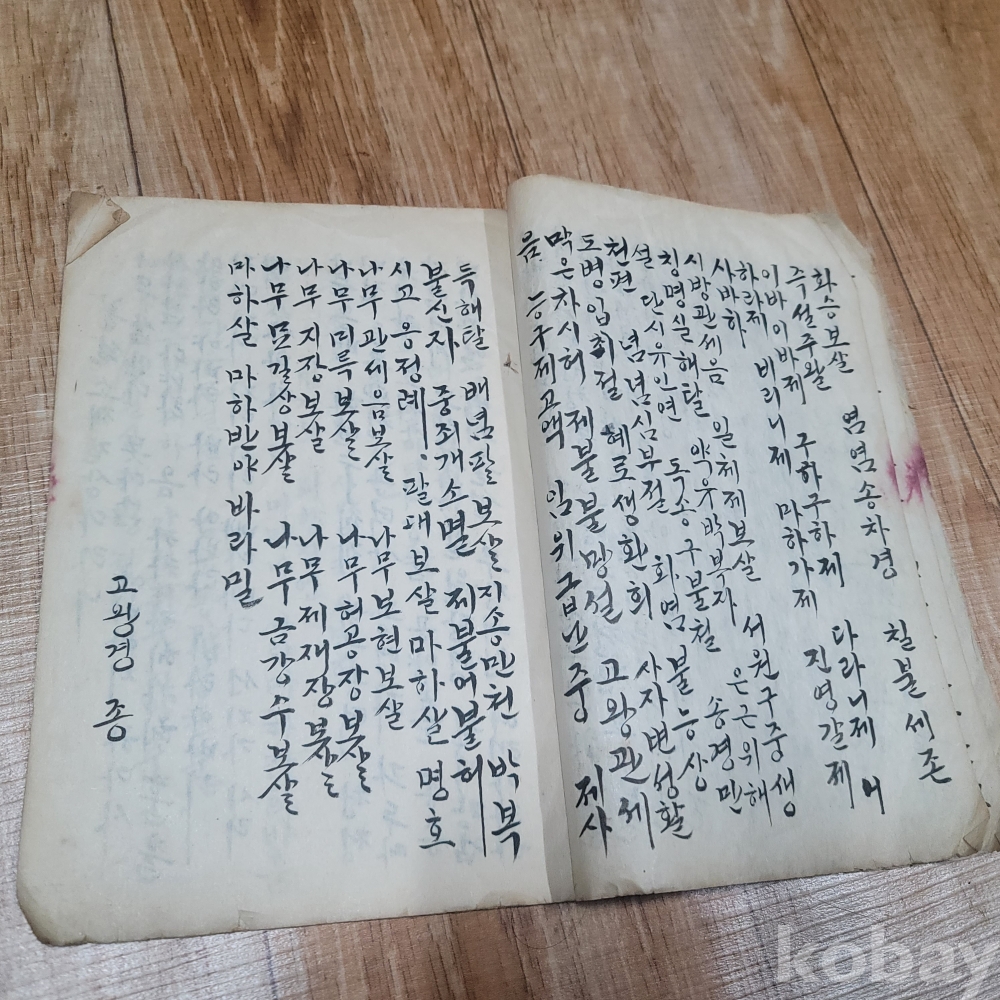 화승보살 염염송차경 칠불세존
즉설주왈 구하구하제 다라니제 니
이바이바제 마하가제 진영갈제
하라제 비리니제
사바하
시방관세음 일체제보살 서원구중생
칭명실해탈 약유박복자 은근위해
설 단시유인연 독송구불철 송경만
천편 념념심부절 화염불능상
도병입최절 혜로생환희 사자변성활
막은차시허 제불불망설 고왕관세
음 능구제고액 임위급난중 제사
득해탈 배념팔보살 지송만천 박복
불신자 중죄개소멸 제불어불허
시고 응정례. 팔대보살마하살 명호
나무관세음보살 나무보현보살
나무미륵보살 나무허공장보살
나무지장보살 나무제재장보살
나무묘길상보살 나무금강수보살
마하살 마하반야바라밀
고왕경 종
kobay